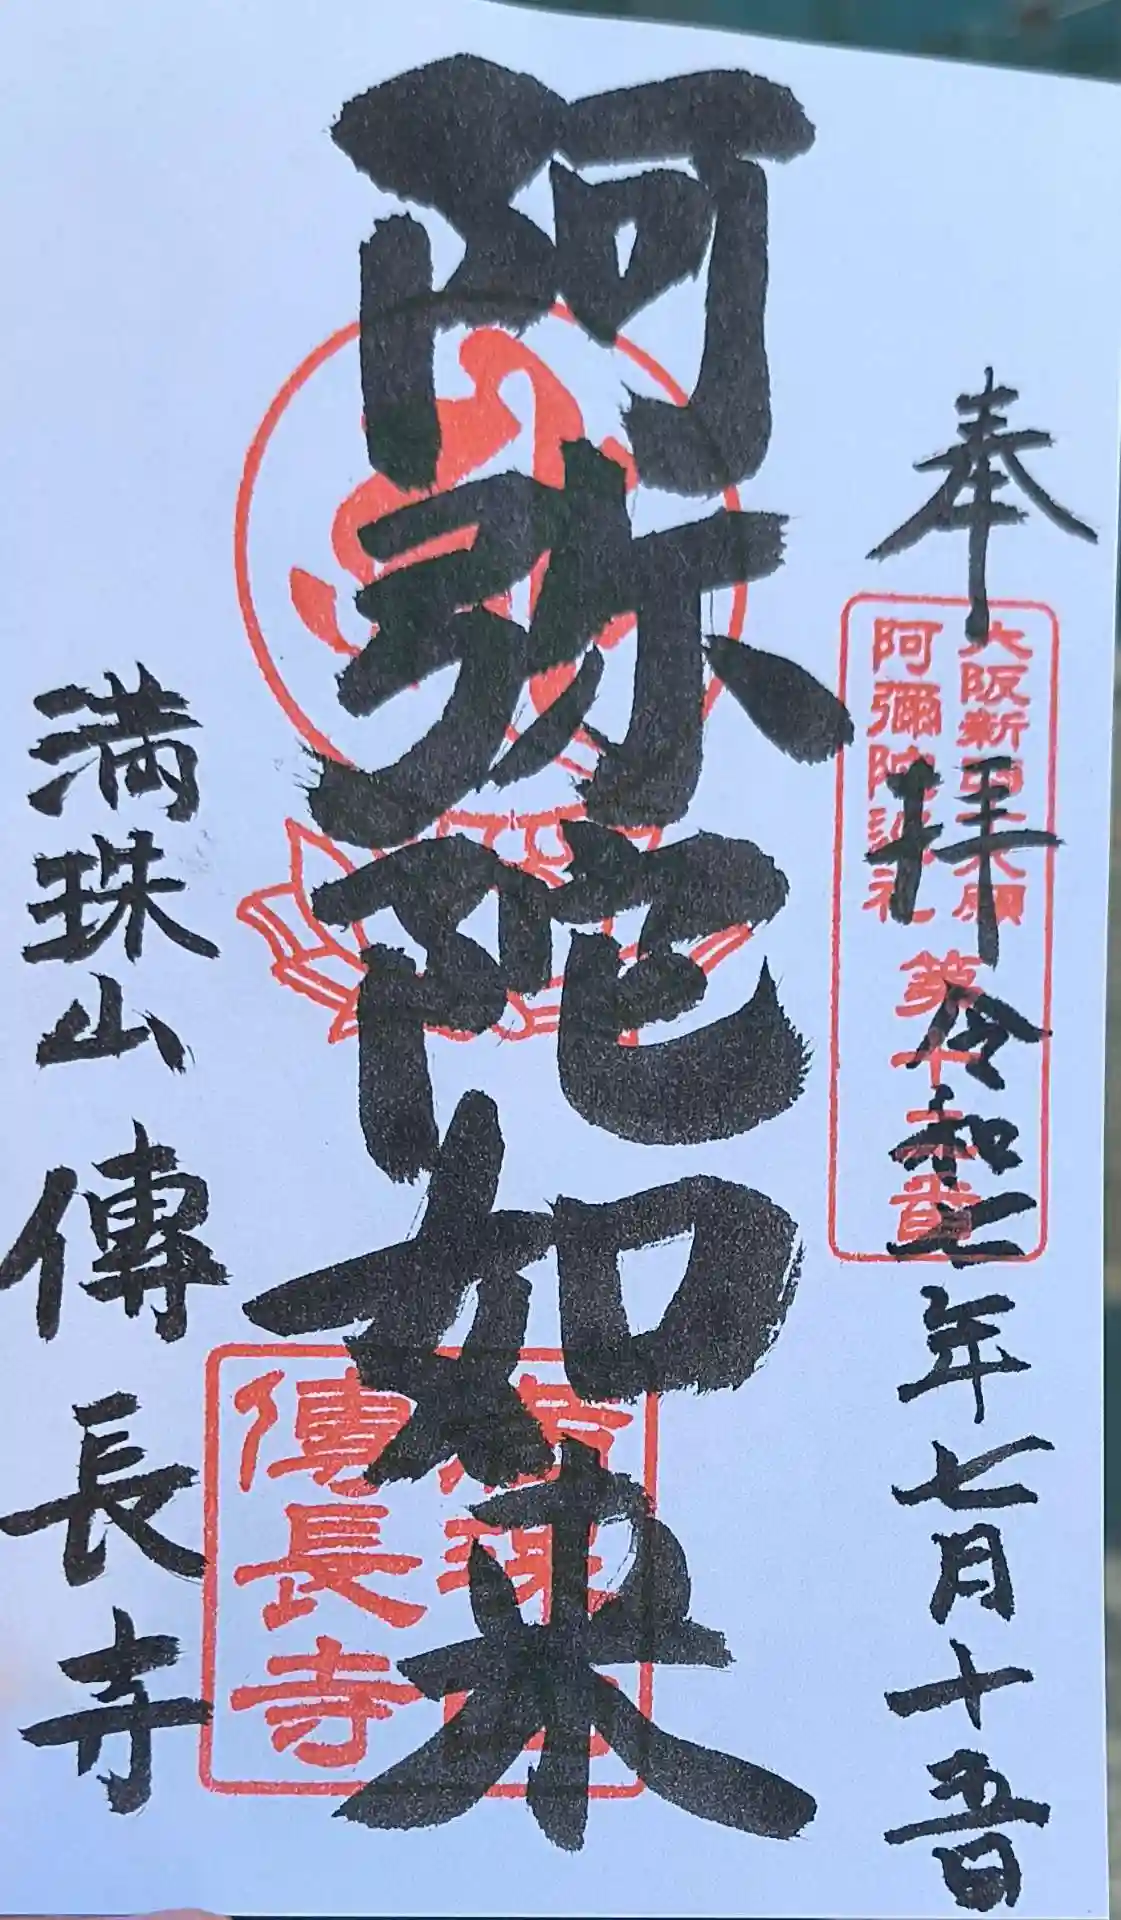 奉拝 令和七年七月十五日
大阪新四十八願
阿彌陀巡礼
第十二番
阿弥陀如来
満珠山
傳長寺
満珠山 傳長寺